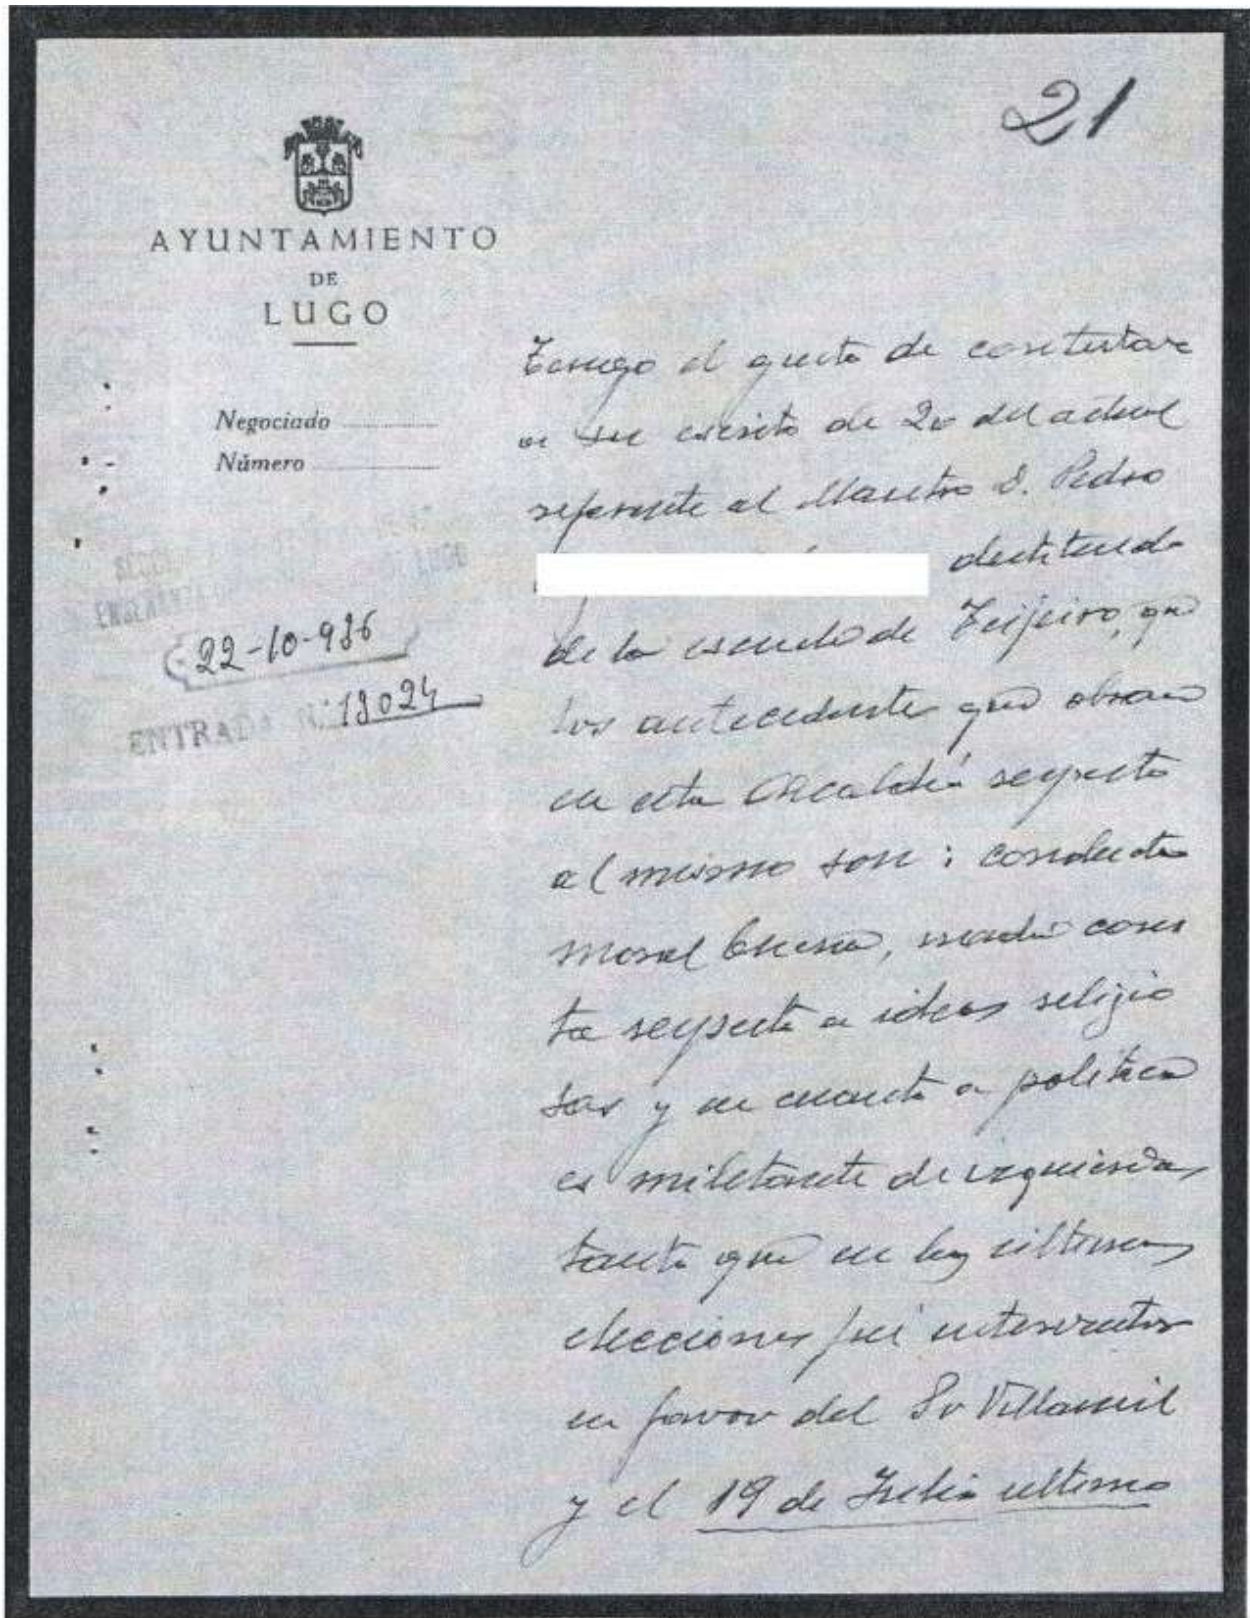 21
AYUNTAMIENTO
DE
LUGO
Negociado
Número
LUGO
22-10-936
ENTRADA N.º 18024
Tengo el gusto de contestar
a su escrito de 20 del actual
referente al Maestro D. Pedro
destituido
de la escuela de Teijeiro, que
los antecedentes que obran
en esta Alcaldía respecto
al mismo son: conducta
moral buena, nada cons
ta respecto a ideas religio
sas y en cuanto a política
es militante de izquierdas,
tanto que en las ultimas
elecciones fué interventor
en favor del Sr Villamil
y el 19 de Julio ultimo